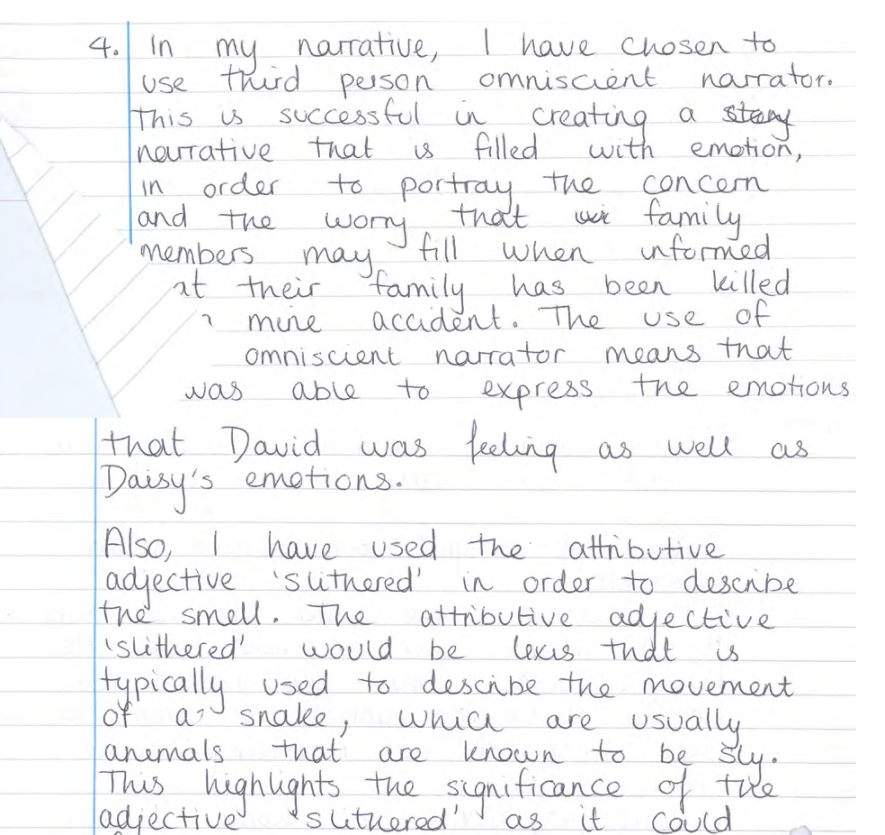 4. In my narrative, I have chosen to
use third person omniscient narrator.
This is successful in creating a story
narrative that is filled with emotion,
in order to portray the concern
and the worry that family
members may fill when informed
at their family has been killed
mine accident. The use of
omniscient narrator means that
was able to express the emotions
that David was feeling as well as
Daisy's emotions.
Also, I have used the attributive
adjective 'slithered' in order to describe
the smell. The attributive adjective
'slithered' would be lexis that is
typically used to describe the movement
of a snake, which are usually
animals that are known to be sly.
This highlights the significance of the
adjective 'slithered' as it could